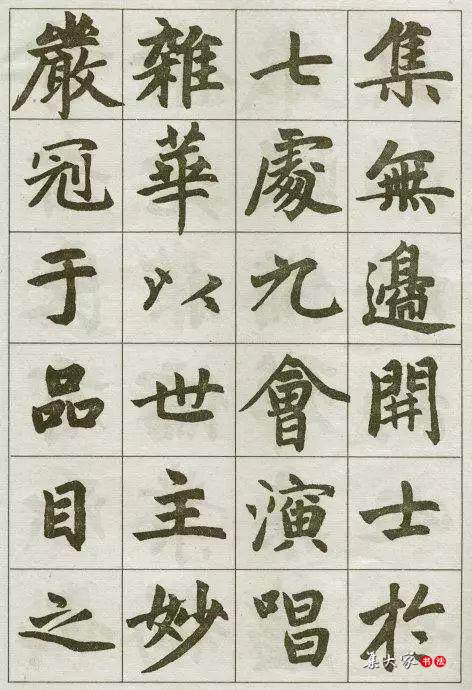 集無邊開士於
七處九會演唱
雜華以世主妙
嚴冠于品目之
集大家书法